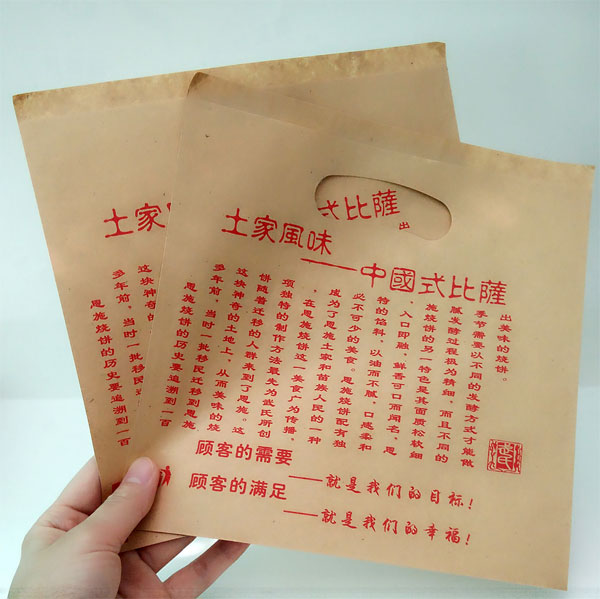 土家風味
——中國式比薩
恩施烧饼的历史要追溯到一百
多年前，当时一批移民迁移到恩施
这块神奇的土地上，从而美味的烧
饼随着迁移的人群来到了恩施。这
项独特的制作方法最先为武氏所创
，在恩施烧饼这一美食广为传播，
成为了恩施土家和苗族人民的一种
必不可少的美食。恩施烧饼配有独
特的馅料，以油而不腻，口感柔和
，入口即融，鲜香可口而闻名。恩
施烧饼的另一特色是其面质松软细
腻发酵过程极为精细，而且不同的
季节需要以不同的发酵方式才能做
出美味的烧饼。
顾客的需要
——就是我们的目标！
顾客的满足
——就是我们的幸福！
式比薩
出
土家
恩施烧饼的历史要追溯到一百
多年前，当时一批移民迁
这块神奇的